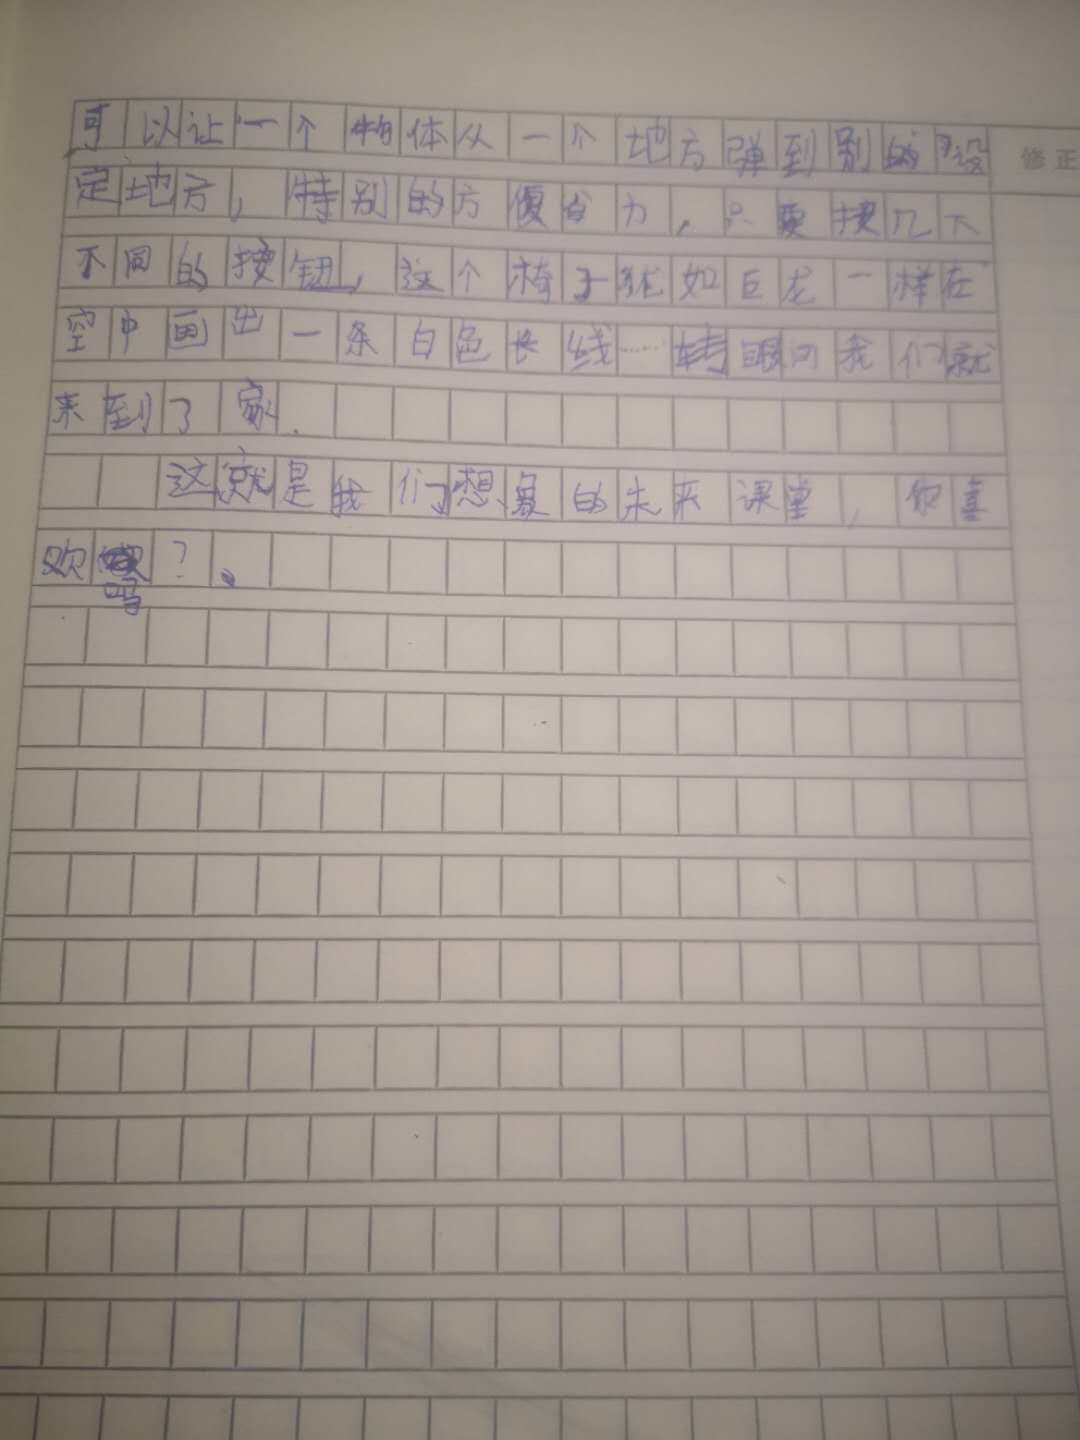 可以让一个物体从一个地方弹到别的设 修正
定地方，特别的方便省力，只要按几下
不同的按钮，这个椅子犹如巨龙一样在
空中画出一条白色长线……转眼间我们就
来到了家.
这就是我们想象的未来课堂，你喜
欢吗？。